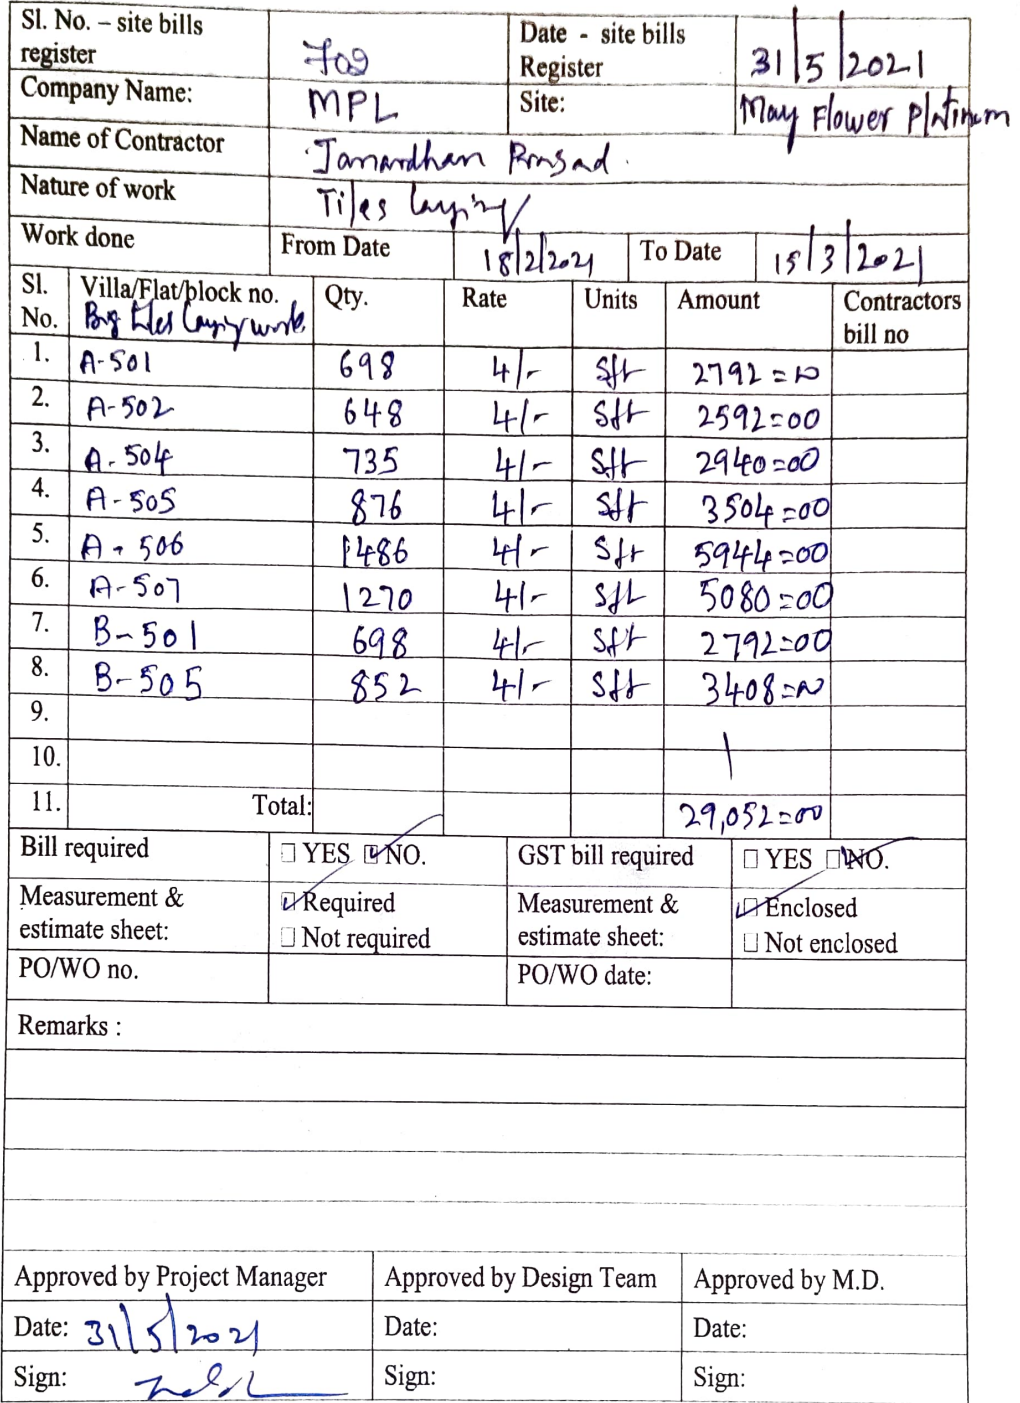 Sl. No. – site bills register 709 Date - site bills Register 31/5/2021
Company Name: MPL Site: May Flower Platinum
Name of Contractor Janardhan Prasad.
Nature of work Tiles laying
Work done From Date 18/2/2021 To Date 15/3/2021
Sl. No. Villa/Flat/block no. Big tiles laying work. Qty. Rate Units Amount Contractors bill no
1. A-501 698 4/- Sft 2792=00
2. A-502 648 4/- Sft 2592=00
3. A-504 735 4/- Sft 2940=00
4. A-505 876 4/- Sft 3504=00
5. A-506 1486 4/- Sft 5944=00
6. A-507 1270 4/- Sft 5080=00
7. B-501 698 4/- Sft 2792=00
8. B-505 852 4/- Sft 3408=00
9.
10.
11. Total: 29,052=00
Bill required □ YES ☑ NO. GST bill required □ YES ☑ NO.
Measurement & estimate sheet: ☑ Required □ Not required Measurement & estimate sheet: ☑ Enclosed □ Not enclosed
PO/WO no. PO/WO date:
Remarks :
Approved by Project Manager Approved by Design Team Approved by M.D.
Date: 31/5/2021 Date: Date:
Sign: Sign: Sign: